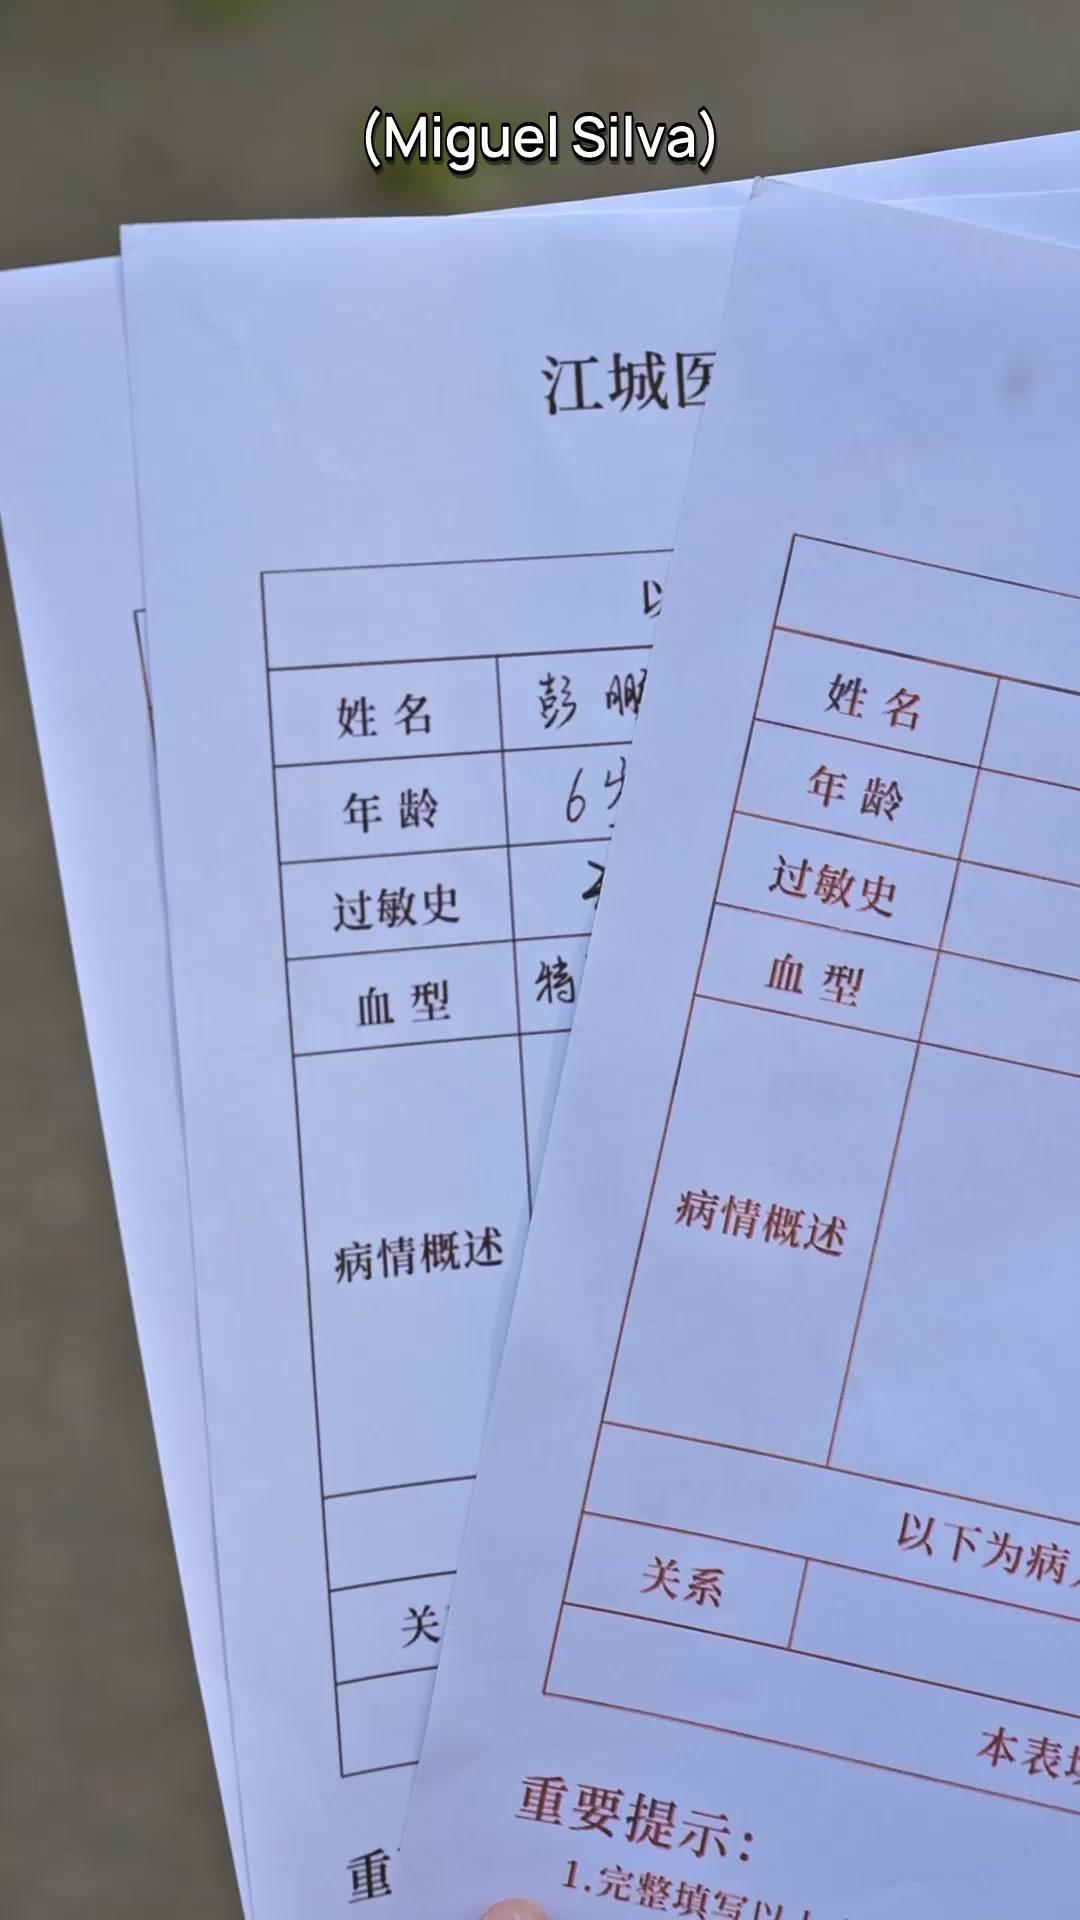 (Miguel Silva)
江城医
以
姓名 彭鹏
年龄 6岁
过敏史
血型 特
病情概述
关
重
姓名
年龄
过敏史
血型
病情概述
以下为病人
关系
本表填
重要提示：
1.完整填写以上